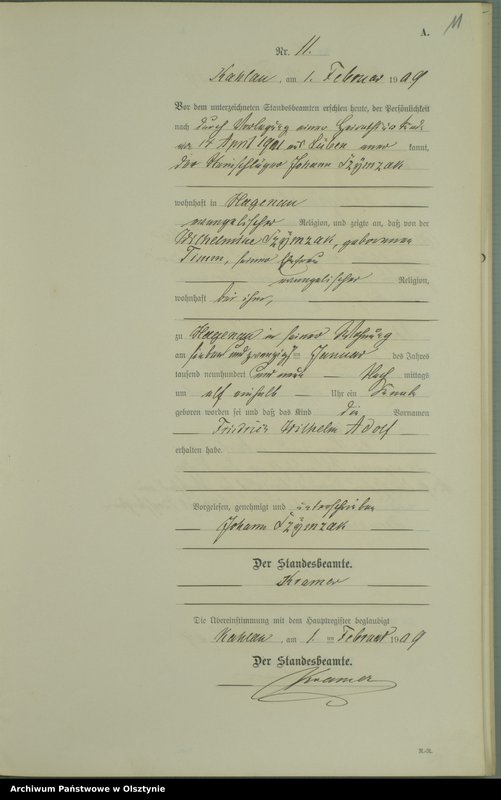 A.
11
Nr. 11.
Kahlau, am 1. Februar 1909
Vor dem unterzeichneten Standesbeamten erschien heute, der Persönlichkeit
nach durch Vorlegung einer Heirathsurkunde
14 April 1901 kannt,
der Steinschläger Johann Szymzak
wohnhaft in Hagenau
evangelischer Religion, und zeigte an, daß von der
Wilhelmine Szymzak, geborenen
Timm, seiner Ehefrau
evangelischer Religion,
wohnhaft bei ihm,
zu Hagenau in seiner Wohnung
am sieben und zwanzigsten Januar des Jahres
tausend neunhundert und neun Nachmittags
um elf einhalb Uhr ein Knabe
geboren worden sei und daß das Kind die Vornamen
Friedrich Wilhelm Adolf
erhalten habe.
Vorgelesen, genehmigt und unterschrieben
Johann Szymzak
Der Standesbeamte.
Kramer
Die Übereinstimmung mit dem Hauptregister beglaubigt
Kahlau, am 1. ten Februar 1909
Der Standesbeamte.
Kramer
Archiwum Państwowe w Olsztynie